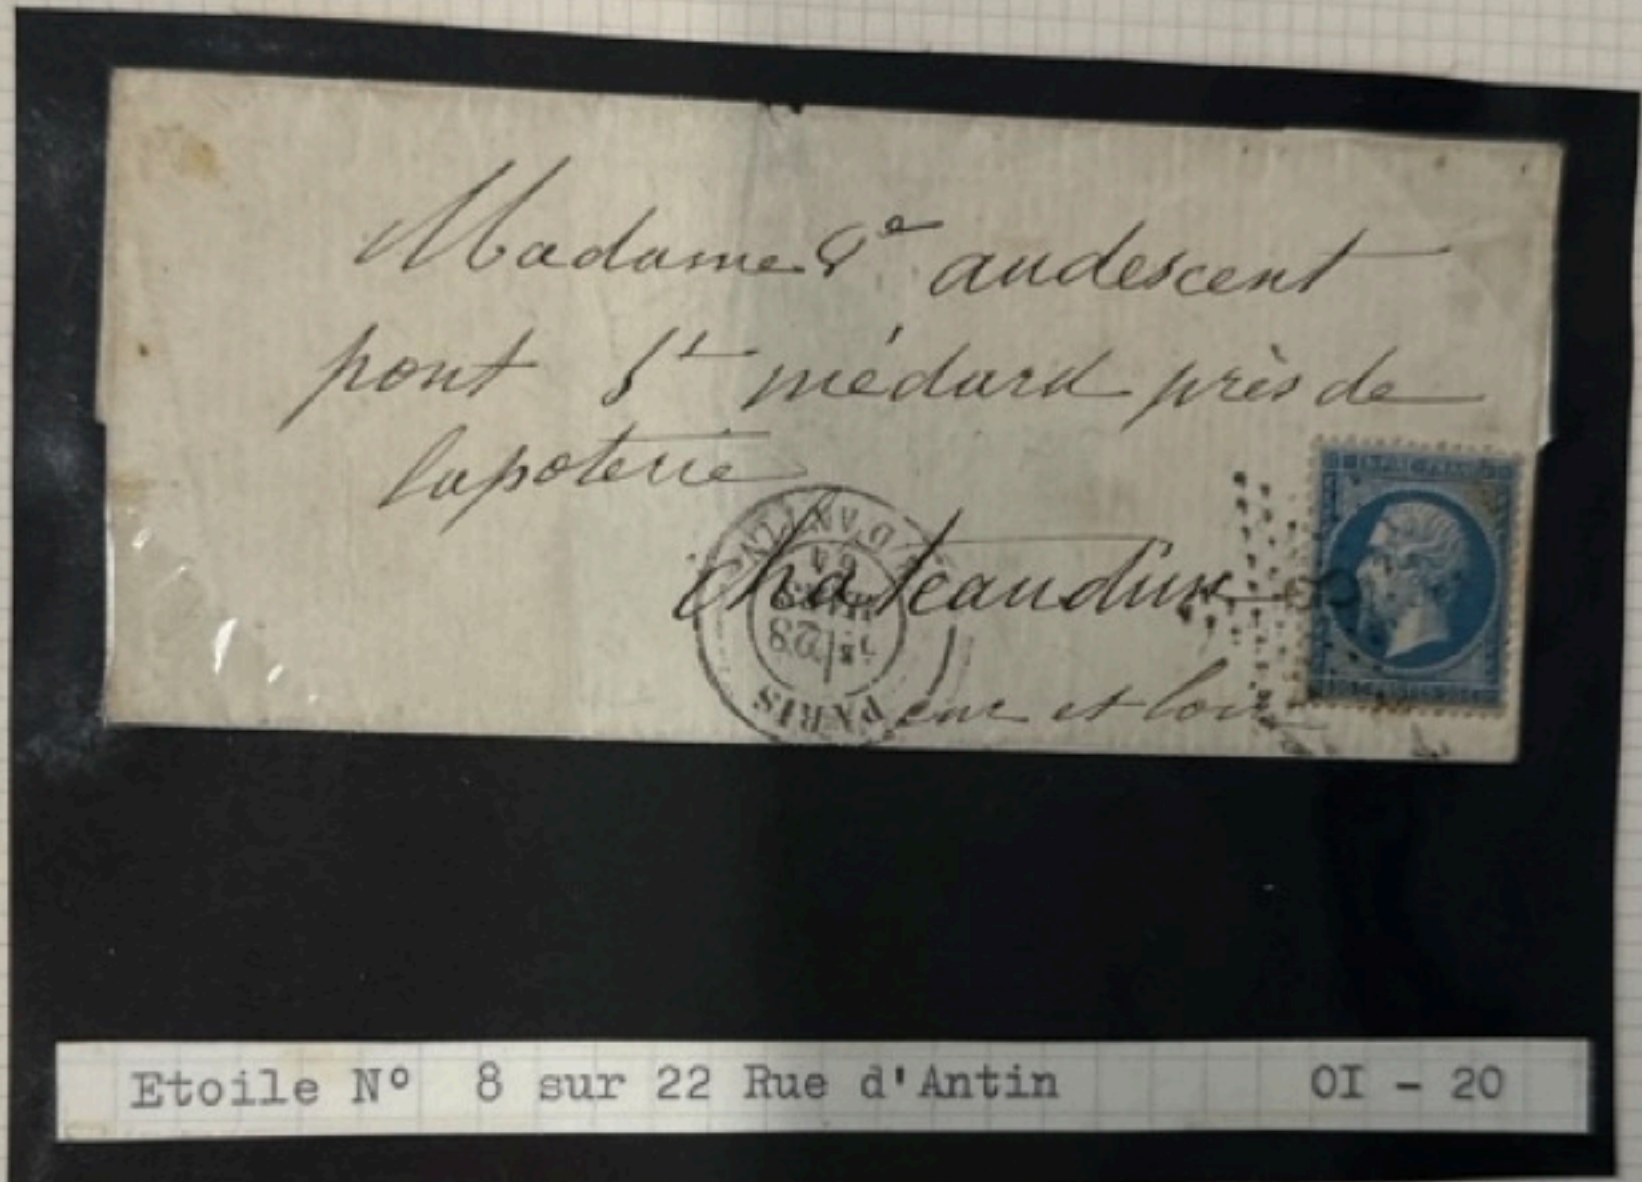 Madame Ve audescent
pont St médard près de
lapoterie
chateaudun
eure et loir
8
R. D'ANTIN
64
28
PARIS
EMPIRE FRANC
Etoile Nº 8 sur 22 Rue d'Antin OI - 20